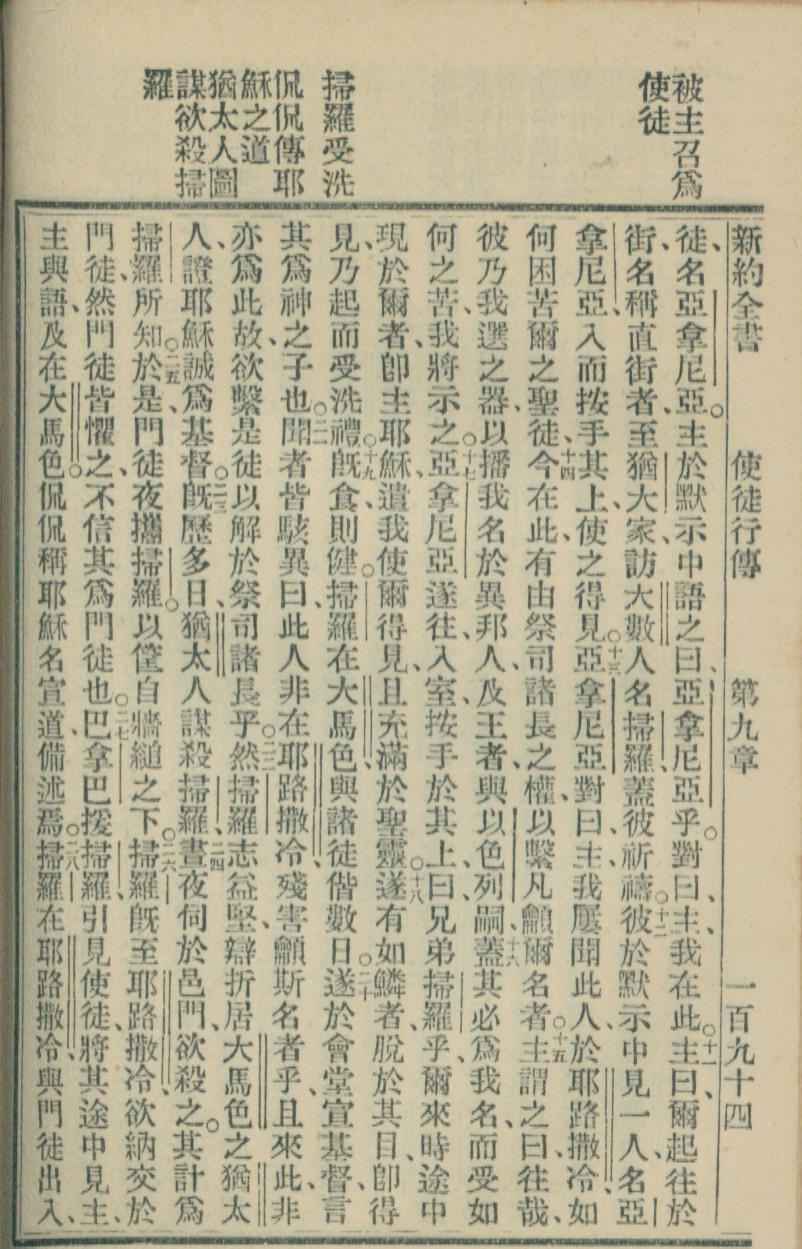 被主召爲
使徒
掃羅受洗
侃侃傳耶
穌之道
猶太人圖
謀欲殺掃
羅
新約全書 使徒行傳 第九章 一百九十四
徒、名亞拿尼亞。主於默示中語之曰、亞拿尼亞乎。對曰、主、我在此。十一主曰、爾起往於
街、名稱直街者、至猶大家、訪大數人名掃羅、蓋彼祈禱。十二彼於默示中、見一人、名亞
拿尼亞、入而按手其上、使之得見。十三亞拿尼亞對曰、主、我屢聞此人、於耶路撒冷、如
何困苦爾之聖徒、十四今在此、有由祭司諸長之權、以繫凡龥爾名者。十五主謂之曰、往哉、
彼乃我選之器、以播我名於異邦人、及王者、與以色列嗣、十六蓋其必爲我名、而受如
何之苦、我將示之。十七亞拿尼亞遂往、入室、按手於其上、曰、兄弟掃羅乎、爾來時、途中
現於爾者、卽主耶穌、遣我使爾得見、且充滿於聖靈。十八遂有如鱗者、脫於其目、卽得
見、乃起而受洗禮。十九旣食則健。掃羅在大馬色、與諸徒偕數日。二十遂於會堂宣基督、言
其爲神之子也。二一聞者皆駭異曰、此人非在耶路撒冷、殘害龥斯名者乎、且來此、非
亦爲此故、欲繫是徒以解於祭司諸長乎。二二然掃羅志益堅、辯折居大馬色之猶太
人、證耶穌誠爲基督。二三旣歷多日、猶太人謀殺掃羅、二四晝夜伺於邑門、欲殺之。其計爲
掃羅所知。二五於是、門徒夜攜掃羅。以筐自牆縋之下。二六掃羅旣至耶路撒冷、欲納交於
門徒、然門徒皆懼之、不信其爲門徒也。二七巴拿巴援掃羅、引見使徒、將其途中見主、
主與語、及在大馬色。侃侃稱耶穌名宣道、備述焉。二八掃羅在耶路撒冷、與門徒出入、